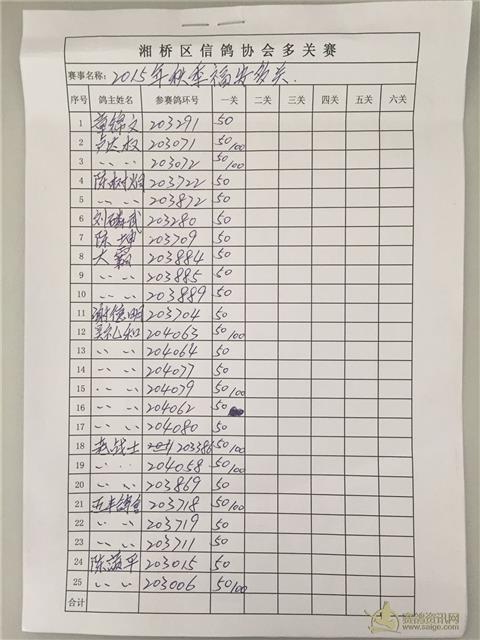 湘桥区信鸽协会多关赛
赛事名称: 2015年秋季福安多关.
序号 鸽主姓名 参赛鸽环号 一关 二关 三关 四关 五关 六关
1 锦文 203291 50
2 卢 权 203071 50/100
3 〃 〃 203072 50/100
4 陈树 203722 50
5 〃 〃 203872 50
6 刘 武 203280 50
7 陈坤 203709 50
8 大霸 203884 50
9 〃 〃 203885 50
10 〃 〃 203889 50
11 谢德明 203704 50
12 吴礼和 204063 50/100
13 〃 〃 204064 50
14 〃 〃 204077 50
15 〃 〃 204079 50/100
16 〃 〃 204062 50
17 〃 〃 204080 50
18 赵战士 203386 50/100
19 〃 〃 204058 50/100
20 〃 〃 203869 50
21 203718 50/100
22 〃 〃 203719 50
23 〃 〃 203711 50
24 陈 平 203015 50
25 〃 〃 203006 50/100
合计
赛鸽资讯网
www.saige.com